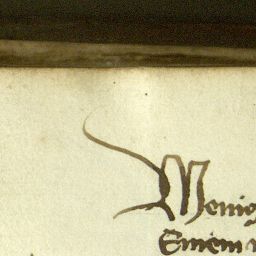 Menig
Einem